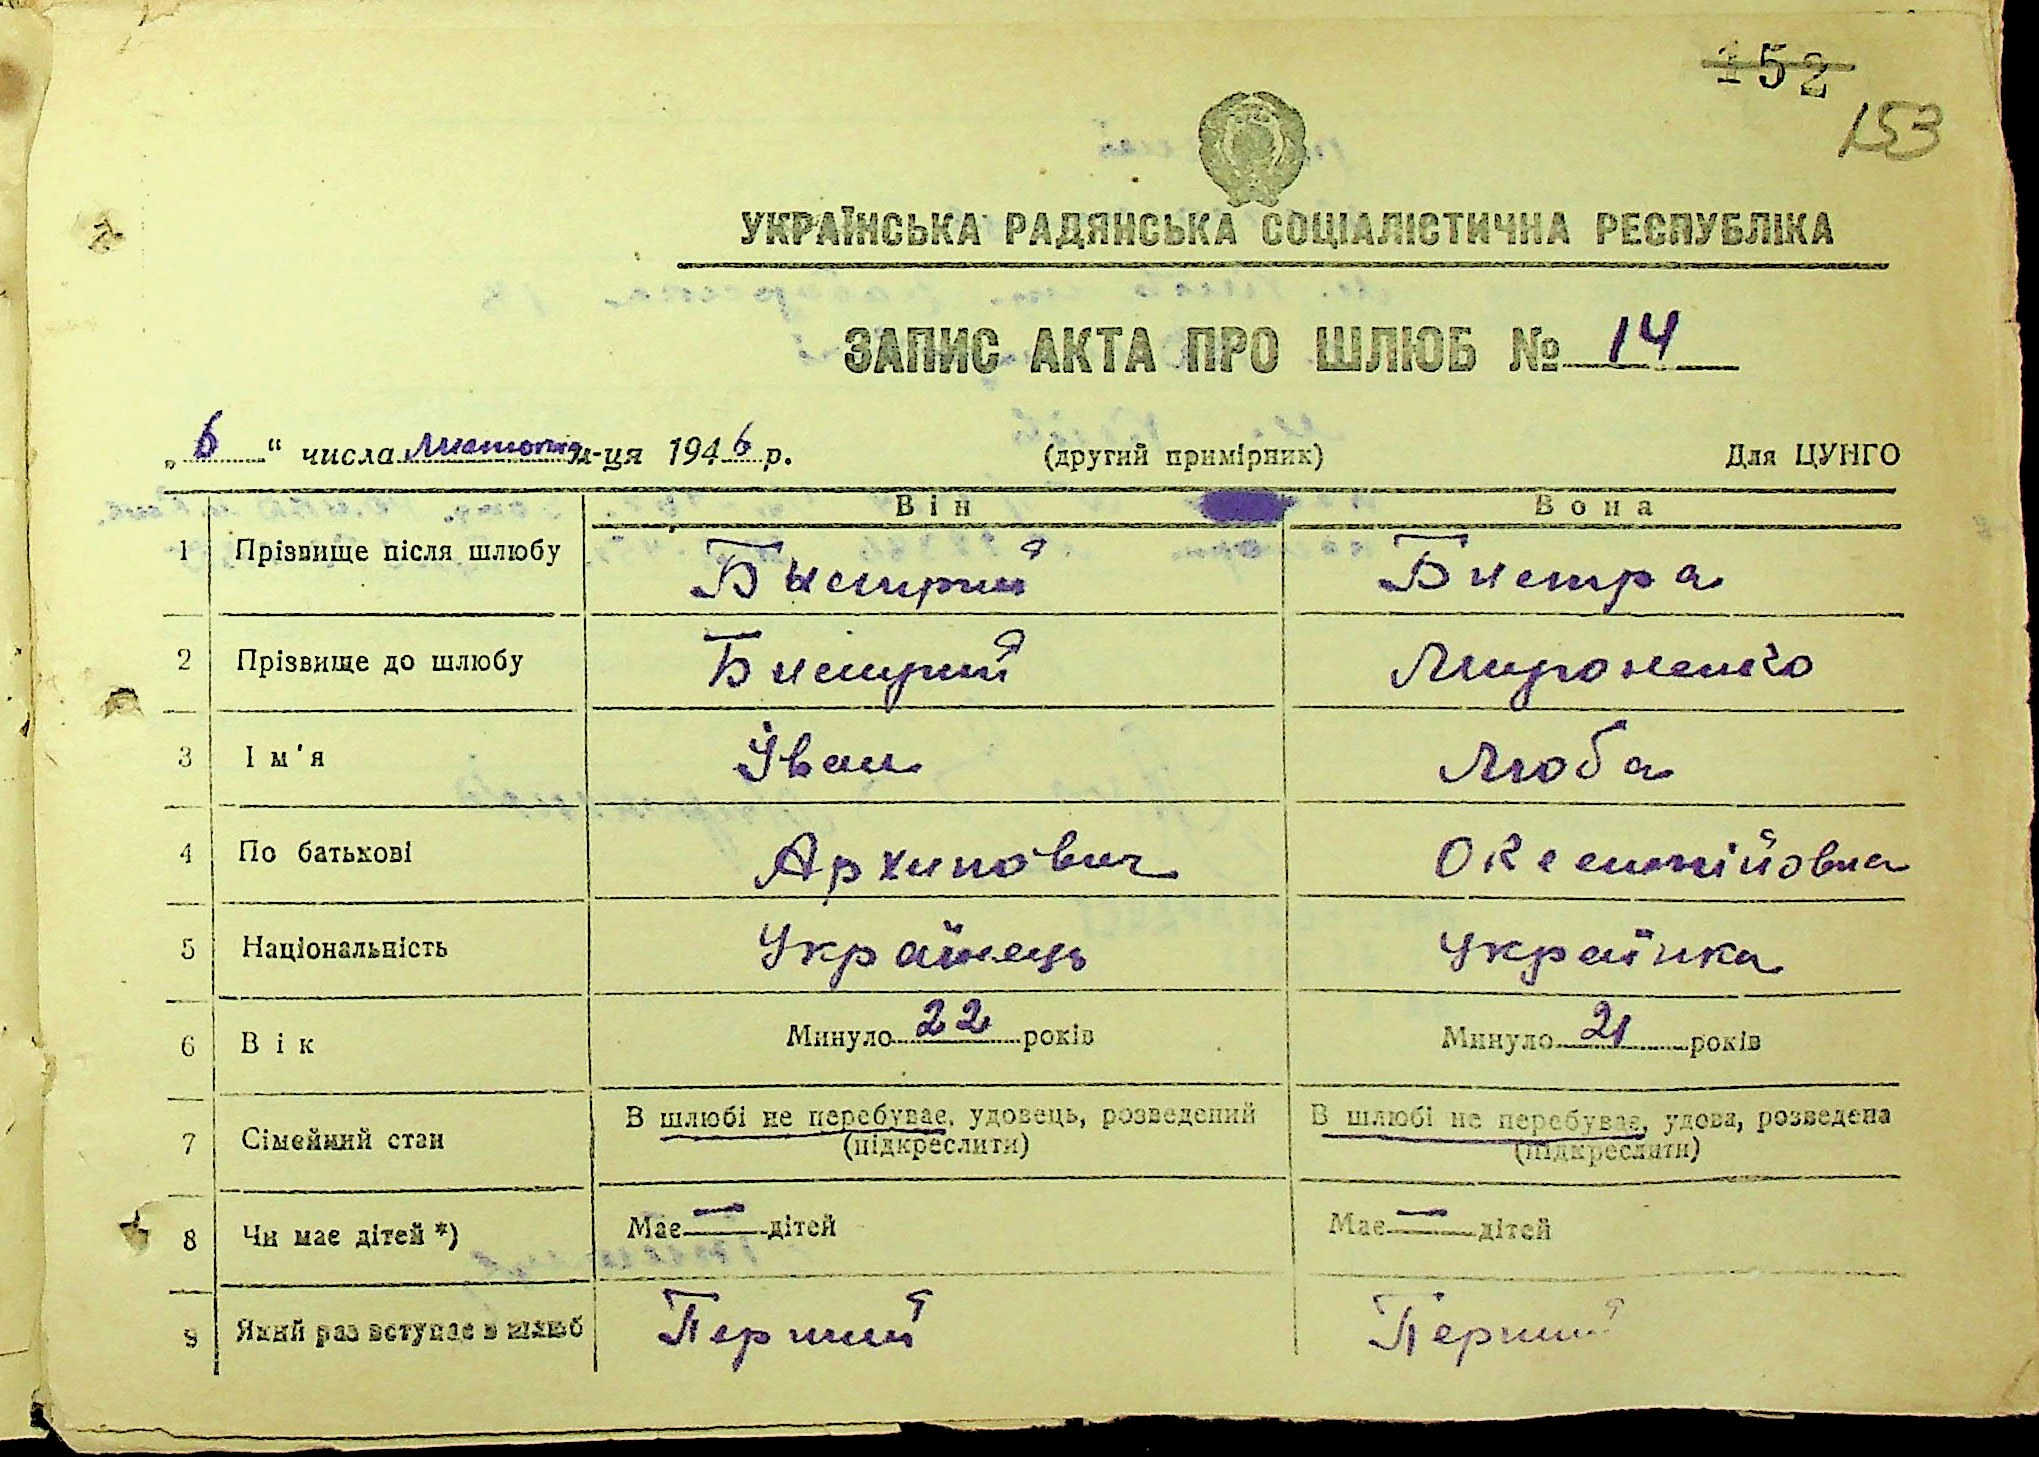 152
153
УКРАЇНСЬКА РАДЯНСЬКА СОЦІАЛІСТИЧНА РЕСПУБЛІКА
ЗАПИС АКТА ПРО ШЛЮБ № 14
„6“ числа лютого м-ця 1946 р. (другий примірник) Для ЦУНГО
Він Вона
1 Прізвище після шлюбу Бистрий Бистра
2 Прізвище до шлюбу Бистрий Мироненко
3 Ім'я Іван Люба
4 По батькові Архипович
5 Національність Українець Українка
6 Вік Минуло 22 років Минуло 21 років
7 Сімейний стан В шлюбі не перебуває, удовець, розведений В шлюбі не перебуває, удова, розведена
(підкреслити) (підкреслити)
8 Чи має дітей *) Має — дітей Має — дітей
9 Який раз вступає в шлюб Перший Перший